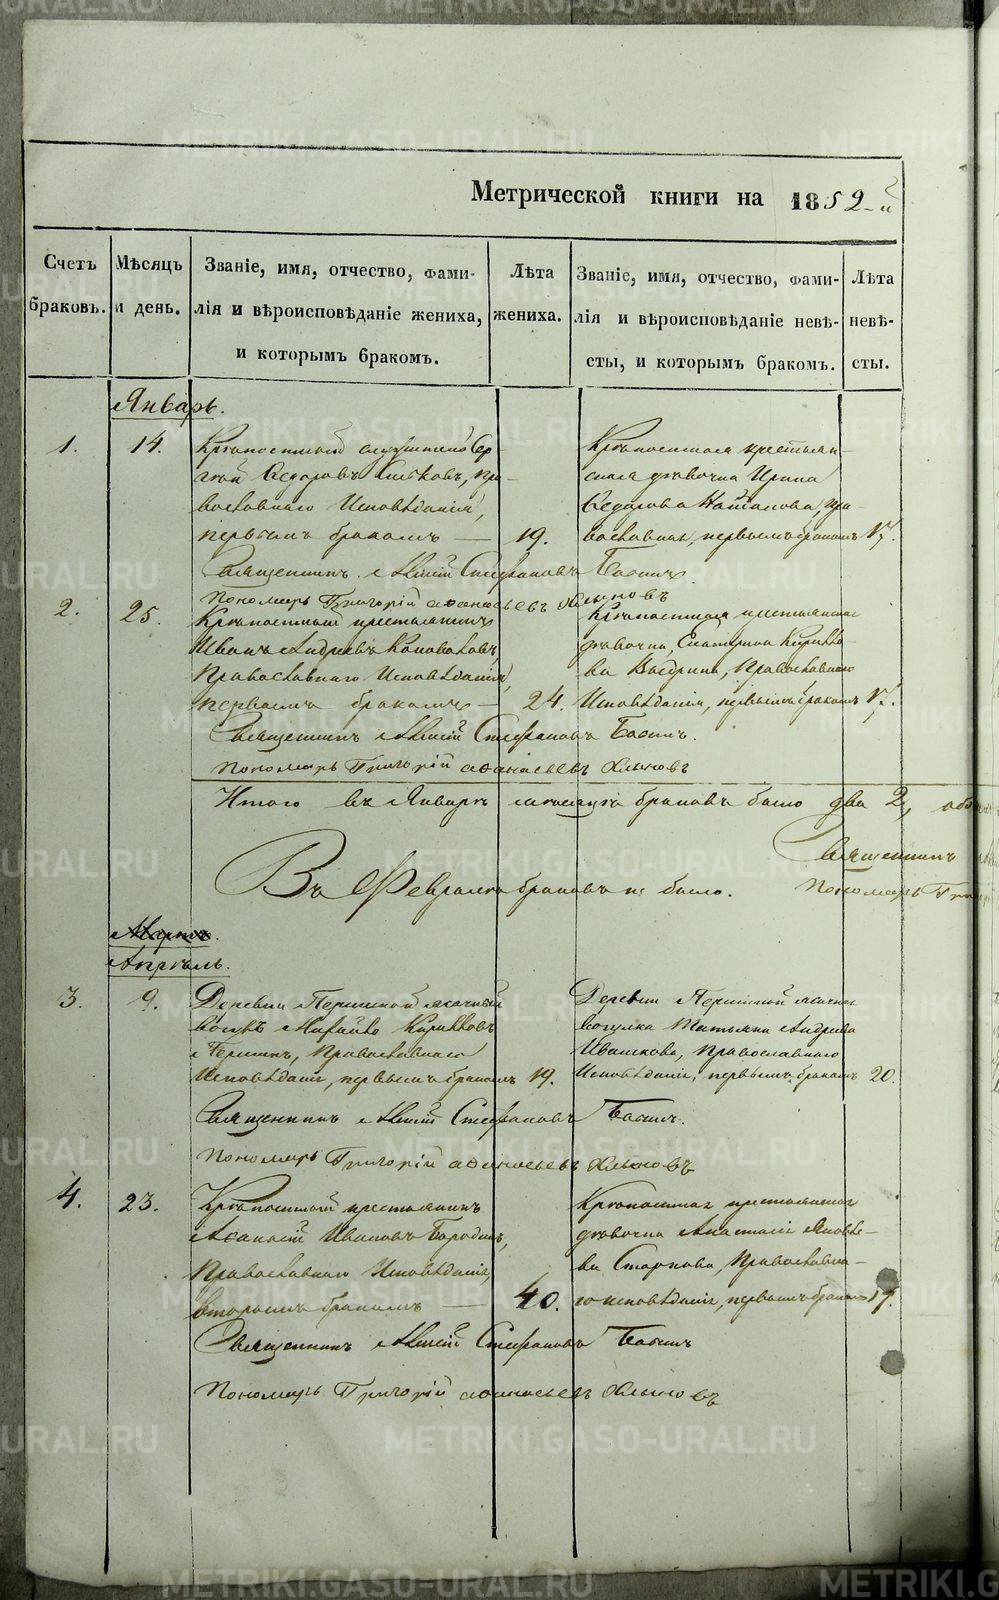 Метрической книги на 1852-й
Счетъ браковъ.
Мѣсяцъ и день.
Званіе, имя, отчество, фами-
лія и вѣроисповѣданіе жениха,
и которымъ бракомъ.
Лѣта жениха.
Званіе, имя, отчество, фами-
лія и вѣроисповѣданіе невѣ-
сты, и которымъ бракомъ.
Лѣта невѣ-
сты.
Январь.
1. 14.
Крѣпостный Сер-
гѣй Ѳедоровъ пра-
вославнаго Исповѣданія,
первымъ бракомъ — 19.
Крѣпостная крестьян-
ская дѣвочка Ирина
Ѳедорова пра-
вославная, первымъ бракомъ 17.
Священникъ Стефановъ Бабинъ.
Пономарь Григорій Аѳанасьевъ Хлыновъ
2. 25.
Крѣпостный крестьянинъ
Иванъ Андреевъ Коноваловъ,
Православнаго Исповѣданія,
первымъ бракомъ — 24.
Крѣпостная крестьянская
дѣвочка, Екатерина Кирилло-
ва Православнаго
Исповѣданія, первымъ бракомъ 17.
Священникъ Стефановъ Бабинъ.
Пономарь Григорій Аѳанасьевъ Хлыновъ
Итого въ Январѣ мѣсяцѣ браковъ было два 2,
Священникъ
Пономарь
Въ Февралѣ браковъ не было.
Мартъ.
Апрѣль.
3. 9.
Деревни ясачный
вогулъ Михайло Кирилловъ
Православнаго
Исповѣданія, первымъ бракомъ 19.
Деревни ясачная
вогулка Татьяна Андреева
Ивашкова, Православнаго
Исповѣданія, первымъ бракомъ 20.
Священникъ Стефановъ Бабинъ.
Пономарь Григорій Аѳанасьевъ Хлыновъ
4. 23.
Крѣпостный крестьянинъ
Аѳанасій Ивановъ Бородинъ,
Православнаго Исповѣданія,
вторымъ бракомъ — 40.
Крѣпостная крестьянская
дѣвочка Анастасія Яковле-
ва Старкова, Православна-
го исповѣданія, первымъ бракомъ 19.
Священникъ Стефановъ Бабинъ
Пономарь Григорій Аѳанасьевъ Хлыновъ
METRIKI.GASO-URAL.RU